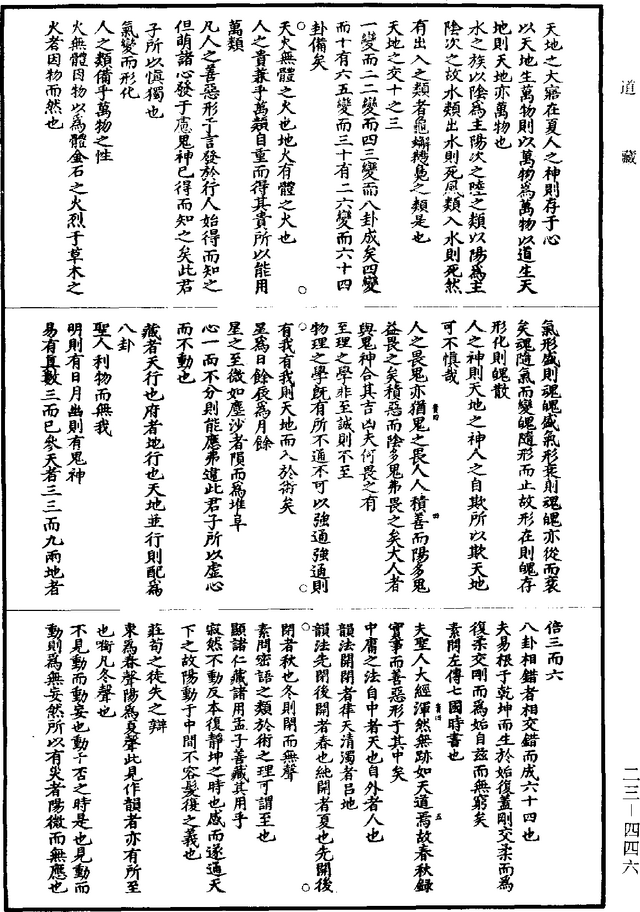 道藏
天地之大寤在夏人之神則存于心
以天地生萬物則以萬物爲萬物以道生天
地則天地亦萬物也
水之族以陰爲主陽次之陸之類以陽爲主
陰次之故水類出水則死風類入水則死然
有出入之類者龜蟹鵝鳧之類是也
天地之交十之三
一變而二二變而四三變而八卦成矣四變
而十有六五變而三十有二六變而六十四
卦備矣
天火無體之火也地火有體之火也
人之貴兼乎萬類自重而得其貴所以能用
萬類
凡人之善惡形于言發於行人始得而知之
但萌諸心發于慮鬼神已得而知之矣此君
子所以慎獨也
氣變而形化
人之類備乎萬物之性
火無體因物以爲體金石之火烈于草木之
火者因物而然也
氣形盛則魂魄盛氣形衰則魂魄亦從而衰
矣魂隨氣而變魄隨形而止故形在則魄存
形化則魄散
人之神則天地之神人之自欺所以欺天地
可不慎哉
人之畏鬼亦猶鬼之畏人人積善而陽多鬼
益畏之矣積惡而陰多鬼弗畏之矣大人者
與鬼神合其吉凶夫何畏之有
至理之學非至誠則不至
物理之學旣有所不通不可以強通強通則
有我有我則天地而入於術矣
星爲日餘辰爲月餘
星之至微如塵沙者隕而爲堆阜
心一而不分則能應弗違此君子所以虛心
而不動也
藏者天行也府者地行也天地並行則配爲
八卦
聖人利物而無我
明則有日月幽則有鬼神
易有真數三而已參天者三三而九兩地者
倍三而六
八卦相錯者相交錯而成六十四也
夫易根于乾坤而生於姤復蓋剛交柔而爲
復柔交剛而爲姤自茲而無窮矣
素問左傳七國時書也
夫聖人大經渾然無跡如天道焉故春秋錄
實事而善惡形于其中矣
中庸之法自中者天也自外者人也
韻法開閉者律天清濁者呂地
韻法先閉後開者春也純開者夏也先開後
閉者秋也冬則閉而無聲
素問密語之類於術之理可謂至也
顯諸仁藏諸用孟子善藏其用乎
寂然不動反本復靜坤之時也感而遂通天
下之故陽動于中間不容髮復之義也
莊荀之徒失之辯
東爲春聲陽爲夏聲此見作韻者亦有所至
也銜凡冬聲也
不見動而動妄也動于否之時是也見動而
動則爲無妄然所以有災者陽微而無應也
二三－四四六